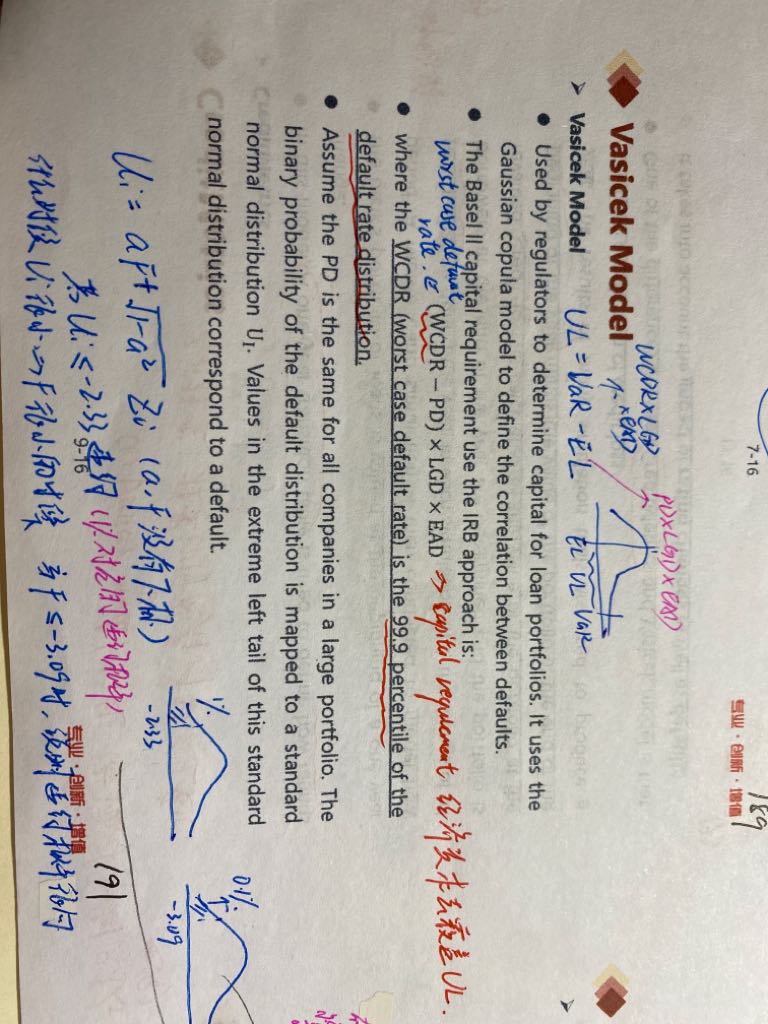 7-16
专业·创新·增值
189
Vasicek Model
WCDR×LGD
×EAD
PD×LGD×EAD
➢ Vasicek Model
UL = VaR - EL
EL UL VaR
● Used by regulators to determine capital for loan portfolios. It uses the
Gaussian copula model to define the correlation between defaults.
● The Basel II capital requirement use the IRB approach is:
worst case default
rate.
(WCDR − PD) × LGD × EAD → capital requirement 经济资本
UL.
● where the WCDR (worst case default rate) is the 99.9 percentile of the
default rate distribution.
● Assume the PD is the same for all companies in a large portfolio. The
binary probability of the default distribution is mapped to a standard
normal distribution U₁. Values in the extreme left tail of this standard
normal distribution correspond to a default.
1%
-2.33
0.1%
-3.09
Ui = aF + √1-a² Zi (a, F没有下标)
若 Ui ≤ -2.33 违约
9-16
专业·创新·增值
191
什么时候 Ui 很小 → F 很小的时候 当 F ≤ -3.09时,